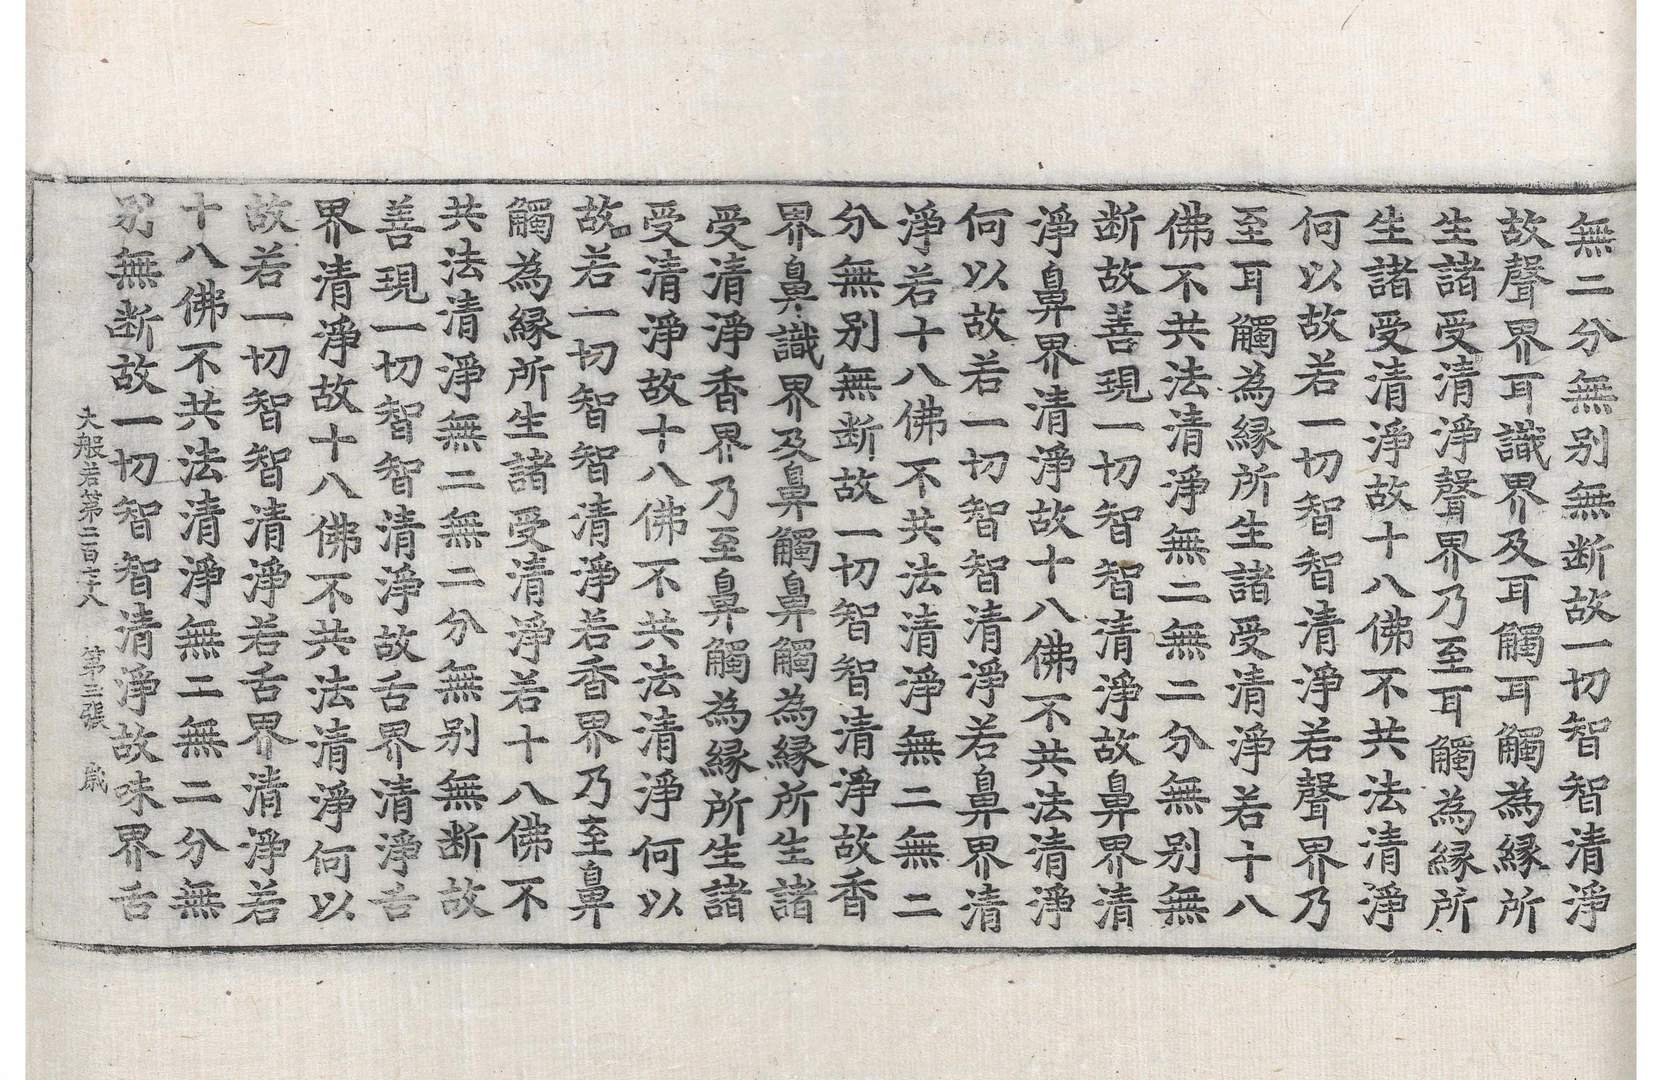 無二分無别無断故一切智智清淨
故聲界耳識界及耳觸耳觸為縁所
生諸受清淨聲界乃至耳觸為縁所
生諸受清淨故十八佛不共法清淨
何以故若一切智智清淨若聲界乃
至耳觸為縁所生諸受清淨若十八
佛不共法清淨無二無二分無别無
断故善現一切智智清淨故鼻界清
淨鼻界清淨故十八佛不共法清淨
何以故若一切智智清淨若鼻界清
淨若十八佛不共法清淨無二無二
分無别無断故一切智智清淨故香
界鼻識界及鼻觸鼻觸為縁所生諸
受清淨香界乃至鼻觸為縁所生諸
受清淨故十八佛不共法清淨何以
故若一切智智清淨若香界乃至鼻
觸為縁所生諸受清淨若十八佛不
共法清淨無二無二分無别無断故
善現一切智智清淨故舌界清淨舌
界清淨故十八佛不共法清淨何以
故若一切智智清淨若舌界清淨若
十八佛不共法清淨無二無二分無
别無断故一切智智清淨故味界舌
大般若第二百七十八 第三張 歲